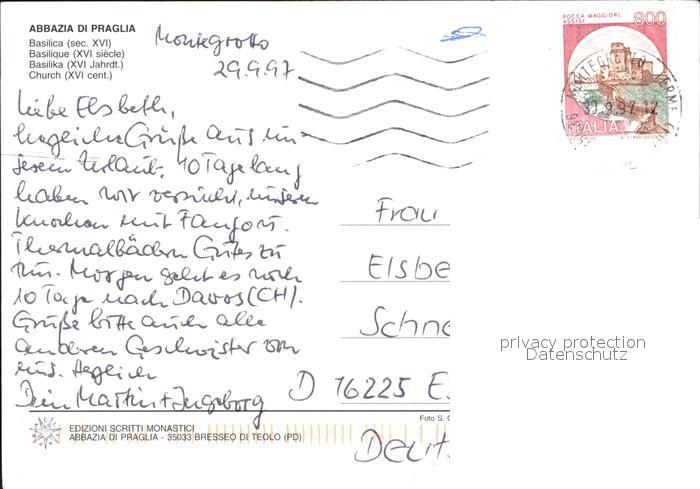 ABBAZIA DI PRAGLIA
Basilica (sec. XVI)
Basilique (XVI siècle)
Basilika (XVI Jahrdt.)
Church (XVI cent.)
Montegrotto
29.9.97
Liebe Elsbeth,
herzliche Grüße aus un-
serem Urlaub. 10 Tage lang
haben wir versucht, unseren
Knochen mit Fango u.
Thermalbädern Gutes zu
tun. Morgen geht es noch
10 Tage nach Davos (CH).
Grüße bitte auch alle
anderen Geschwister von
uns. Herzlich
Dein Martin + Ingeborg
ROCCA MAGGIORE
ASSISI
800
ITALIA
30.9.97.12
Frau
Elsbe
Schne
D 16225 E
Deuts
privacy protection
Datenschutz
Foto S.
EDIZIONI SCRITTI MONASTICI
ABBAZIA DI PRAGLIA - 35033 BRESSEO DI TEOLO (PD)